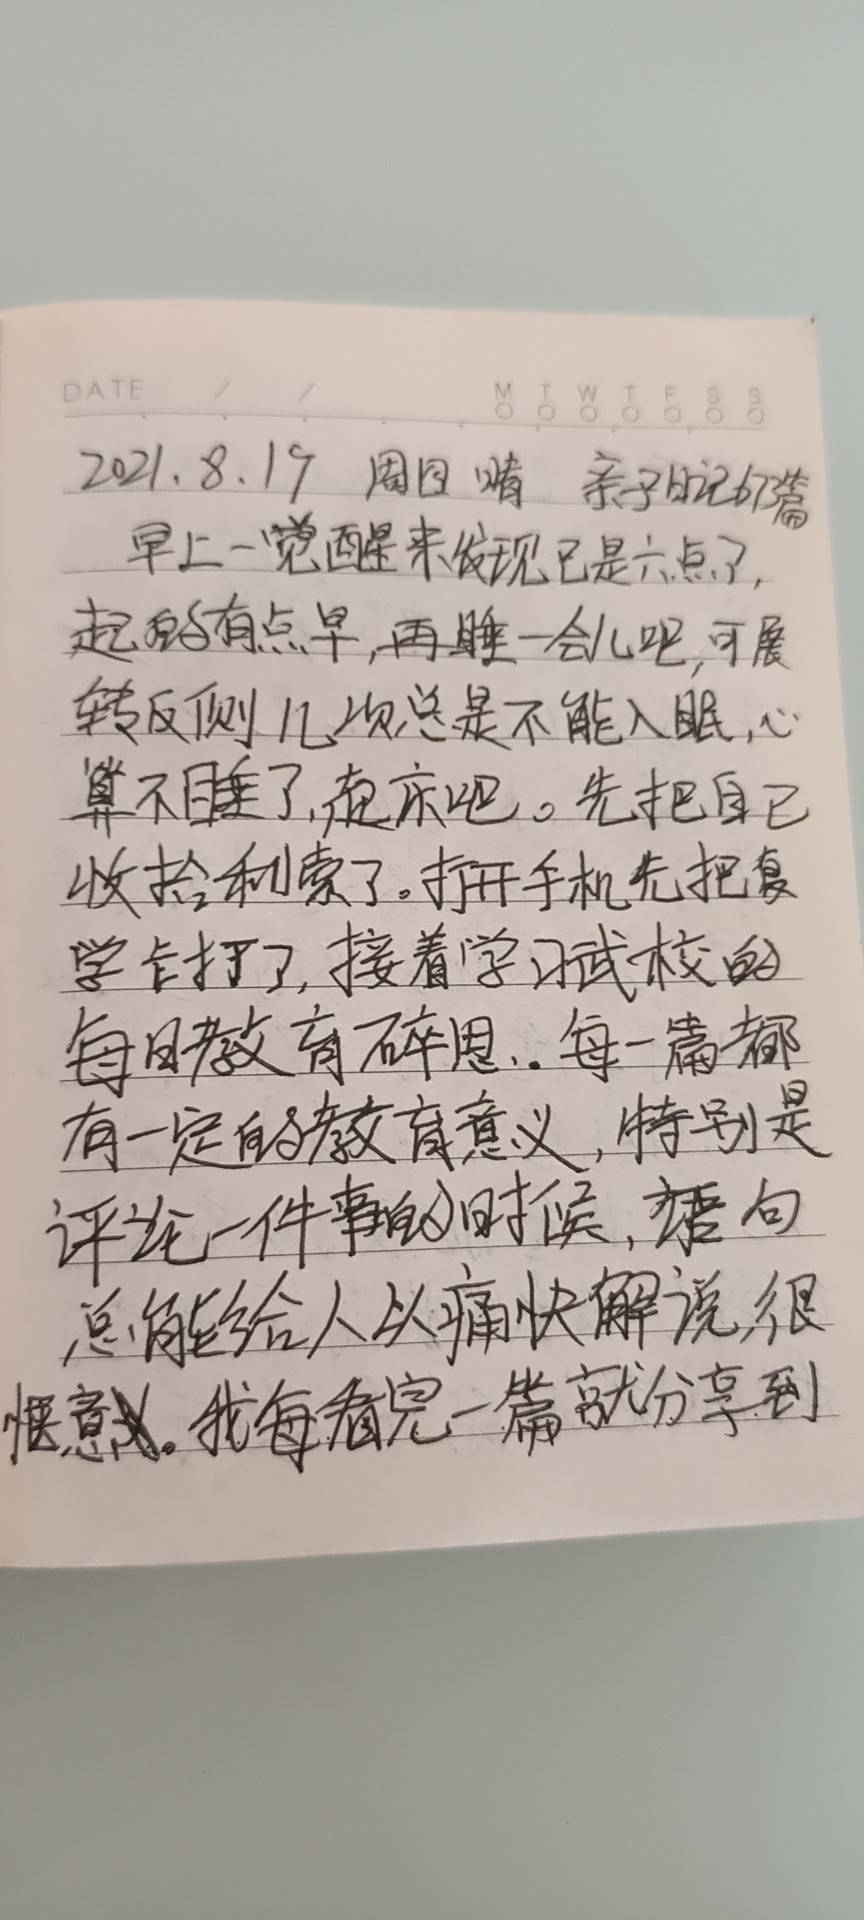 DATE / / M T W T F S S
2021.8.19 周日 晴 亲子日记673篇
早上一觉醒来发现已是六点了,
起的有点早,再睡一会儿吧,可展
转反侧几次总是不能入眠,心
算不睡了,起床吧。先把自己
收拾利索了。打开手机先把复
学卡打了,接着学习武校的
每日教育碎思.. 每一篇都
有一定的教育意义,特别是
评论一件事的时候,语句
总能给人以痛快解说,很
惬意。我每看完一篇就分享到